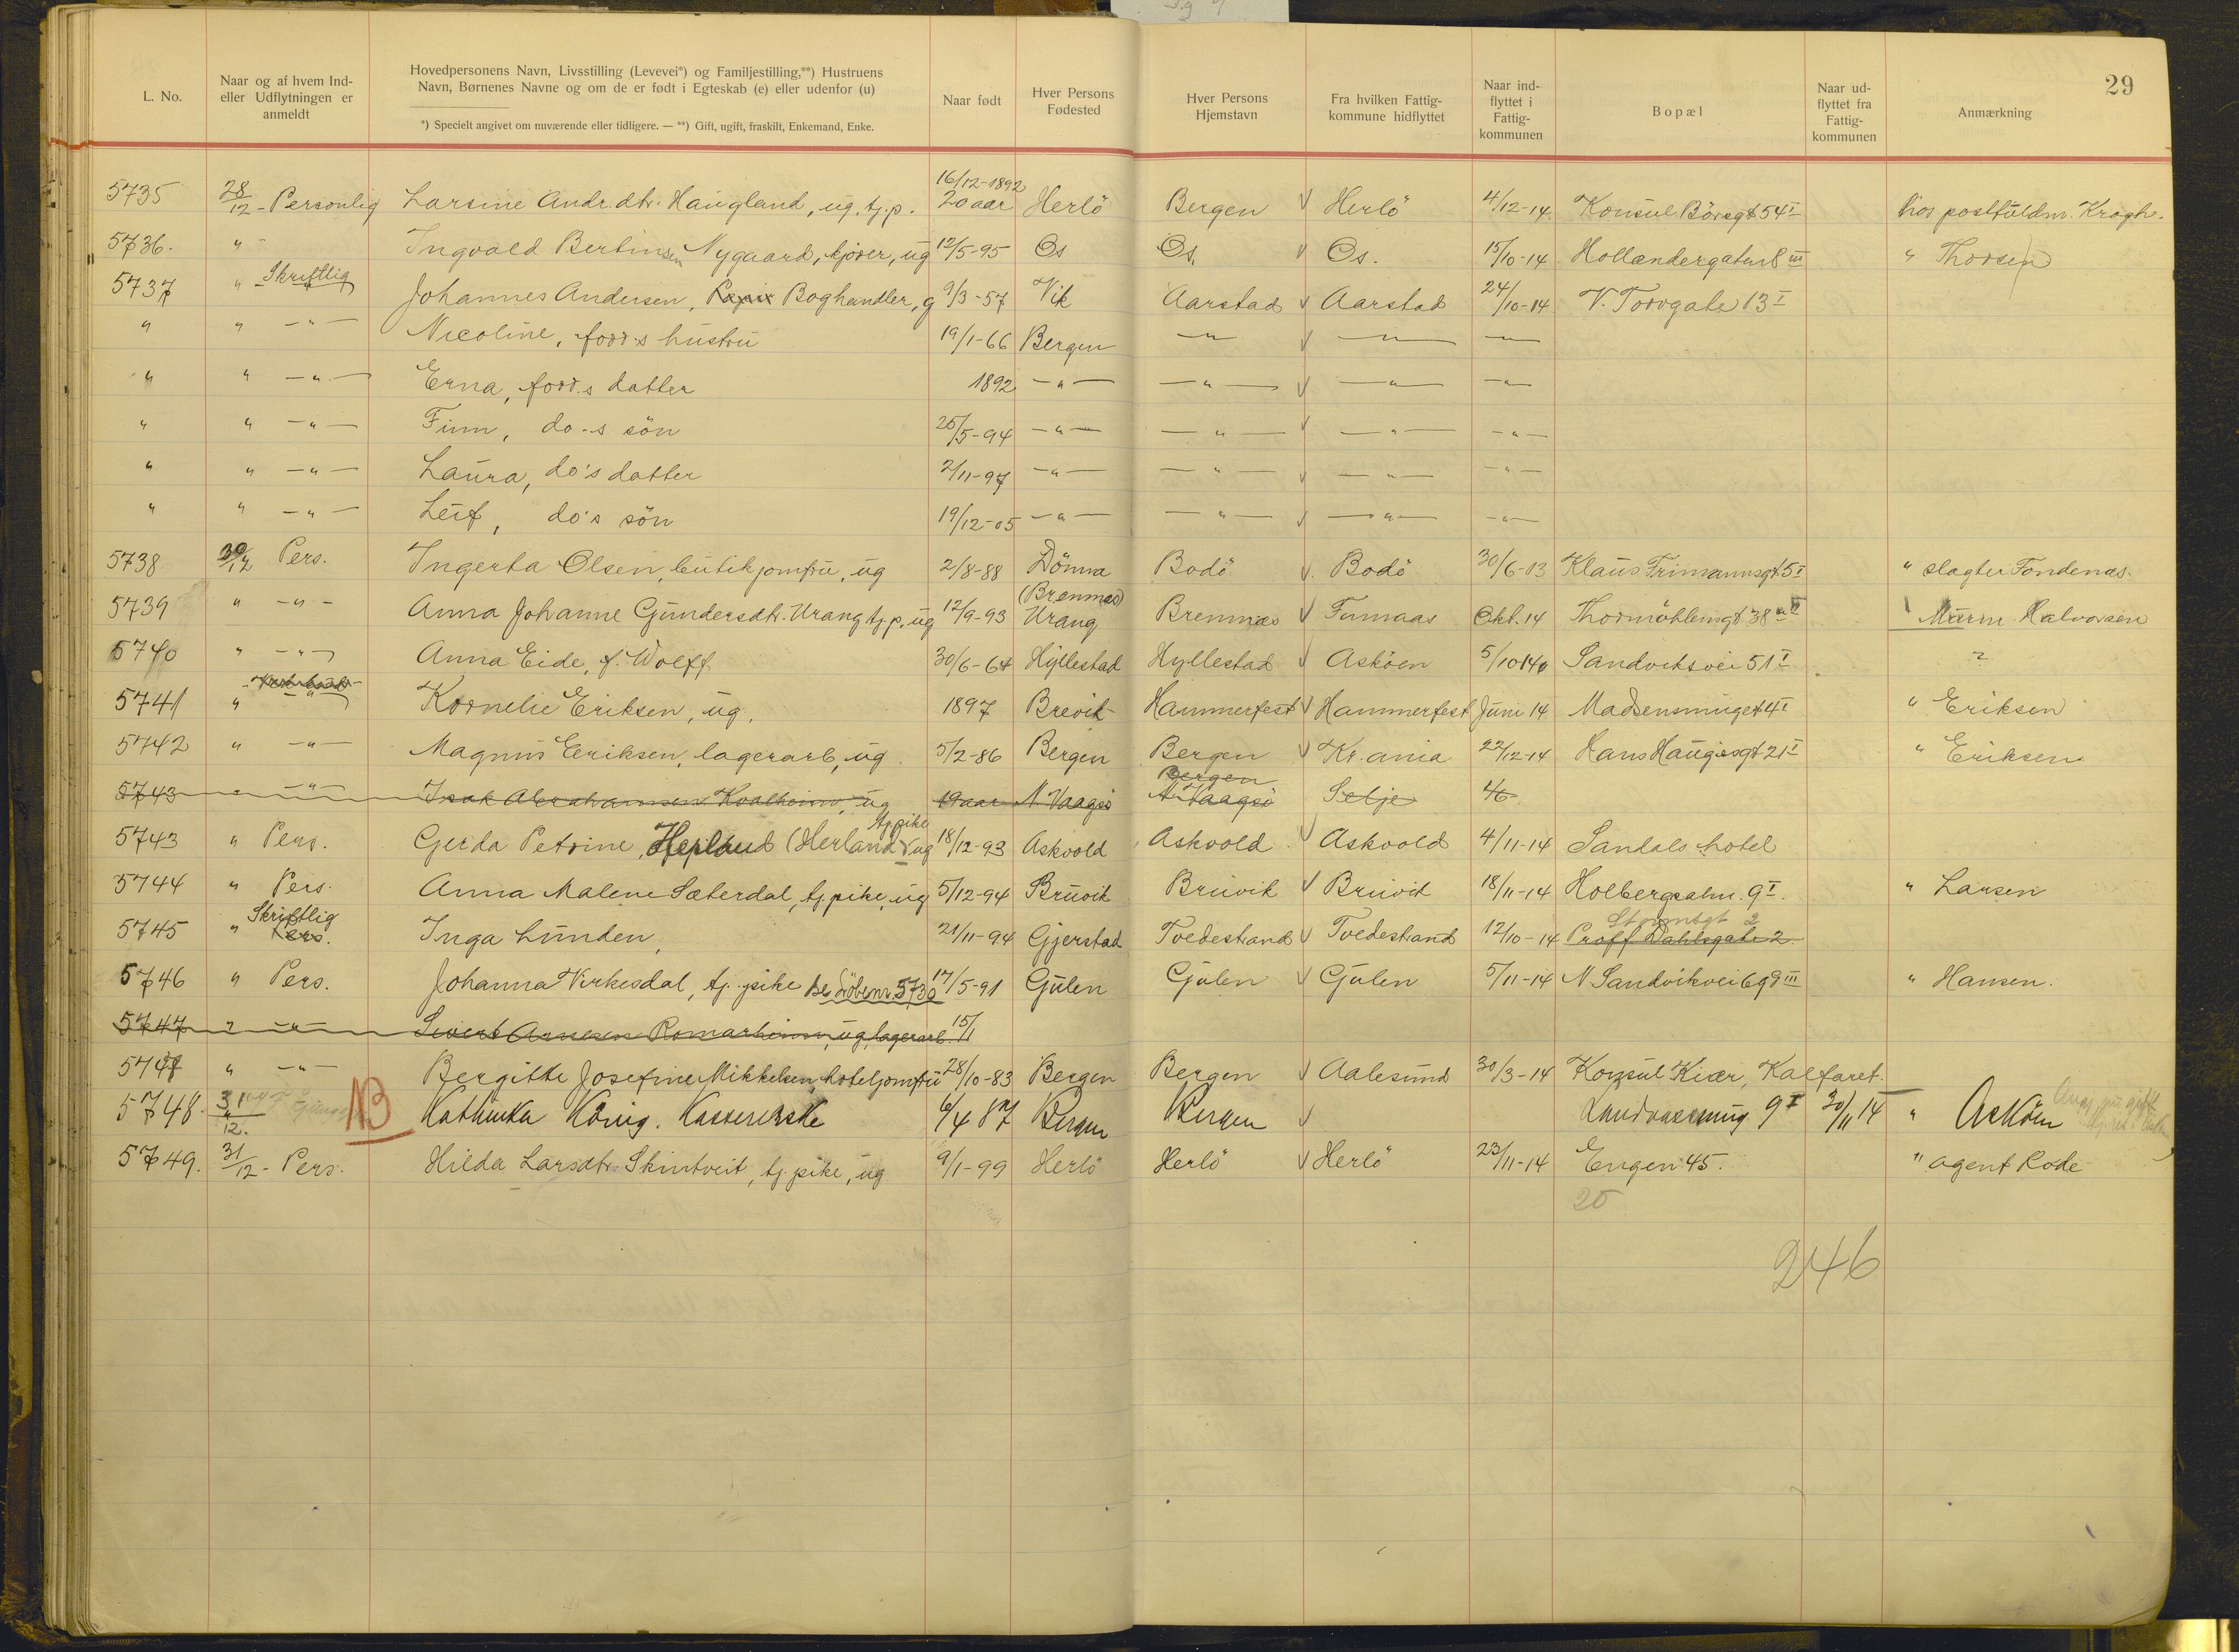 29
L. No. | Naar og af hvem Ind- eller Udflytningen er anmeldt | Hovedpersonens Navn, Livsstilling (Levevei*) og Familjestilling,**) Hustruens Navn, Børnenes Navne og om de er født i Egteskab (e) eller udenfor (u) *) Specielt angivet om nuværende eller tidligere. — **) Gift, ugift, fraskilt, Enkemand, Enke. | Naar født | Hver Persons Fødested | Hver Persons Hjemstavn | Fra hvilken Fattig- kommune hidflyttet | Naar ind- flyttet i Fattig- kommunen | Bopæl | Naar ud- flyttet fra Fattig- kommunen | Anmærkning
5735 28/12 - Personlig Larsine Andr.dtr. Haugland, ug. tj.p. 16/12-1892 20 aar Herlö Bergen √ Herlö 4/12-14. Konsul Börsgt 54 I hos postfuldm. Krogh.
5736. " - Ingvald Bertinsen Nygaard, kjører, ug 12/5-95 Os Os. √ Os. 15/10-14 Hollændergaten 8 III " Thorsen
5737 " Skriftlig Johannes Andersen, Boghandler, g 9/3-57 Vik Aarstad √ Aarstad 24/10-14 V. Torvgate 13 I
" " -"- Nicoline, forr.s hustru 19/1-66 Bergen -"- √ -"- -"-
" " -"- Erna, forr.s datter 1892 -"- -"- √ -"- -"-
" " -"- Finn, do-s sön 25/5-94 -"- -"- √ -"- -"-
" " -"- Laura, do's datter 2/11-97 -"- -"- √ -"- -"-
" " -"- Leif, do's sön 19/12-05 -"- -"- √ -"- -"-
5738 30/12 Pers. Ingerta Olsen, butikjomfru, ug 2/8-88 Dönna Bodö √ Bodö 30/6-13 Klaus Frimannsgt 5 I " slagter Tondenas.
5739 " -"- Anna Johanne Gundersdtr. Urang tj.p. ug 12/9-93 (Bremnes) Urang Bremnæs √ Finnaas Okt. 14 Thormöhlensgt 38 a II " Murm. Halvorsen
5740 " -"- Anna Eide, f. Wolff. 30/6-64 Hyllestad Hyllestad √ Asköen 5/10 14 Sandviksvei 51 I ?
5741 " -"- Kornelie Eriksen, ug. 1897 Brevik Hammerfest √ Hammerfest Juni 14 Madsensmuget 4 I " Eriksen
5742 " -"- Magnus Eriksen, lagerarb, ug. 5/2-86 Bergen Bergen √ Kr.ania 22/12-14 Hans Haugesgt 21 I " Eriksen
5743 " -"- Isak Abrahamsen Kvalheim, ug 19 aar N. Vaagsö Bergen N. Vaagsö Selje 4/6
5743 " Pers. Gerda Petrine, Hepland (Herland) tj.pike ug 18/12-93 Askvold Askvold √ Askvold 4/11-14 Sandals hotel
5744 " Pers. Anna Malene Sæterdal, tj.pike, ug 5/12-94 Bruvik Bruvik √ Bruvik 18/11-14 Holbergsalm. 9 I. " Larsen
5745 " Skriftlig Pers. Inga Lunden, 21/11-94 Gjerstad Tvedestrand √ Tvedestrand 12/10-14 Proff Dahlsgate 2 Strømsgt 2
5746 " Pers. Johanna Virkesdal, tj. pike Se Löbenr. 5730 17/5-91 Gulen Gulen √ Gulen 5/11-14 N Sandvikvei 69 d III " Hansen.
5747 " -"- Sivert Arnesen Romarheim, ug, lagerarb. 15/1
5747 " -"- Bergitte Josefine Mikkelsen, hoteljomfru 28/10-83 Bergen Bergen √ Aalesund 30/3-14 Konsul Kiær, Kalfaret.
5748. 31/12. NB Kathinka König. Kassererske 6/4 87 Bergen Bergen √ Landvæsmug 9 I 30/11 14 " Asköen
5749. 31/12 - Pers. Hilda Larsdtr. Skintveit, tj.pike, ug 9/1-99 Herlö Herlö √ Herlö 23/11-14 Engen 45. " agent Rode
20
246